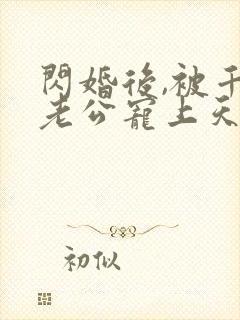 閃婚後,被千
老公寵上天
初似